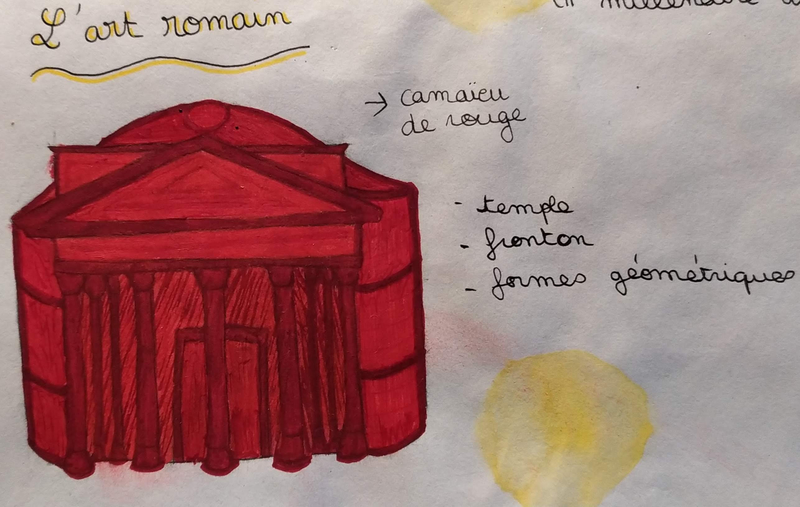 L'art romain
→ camaïeu
de rouge
- temple
- fronton
- formes géométriques